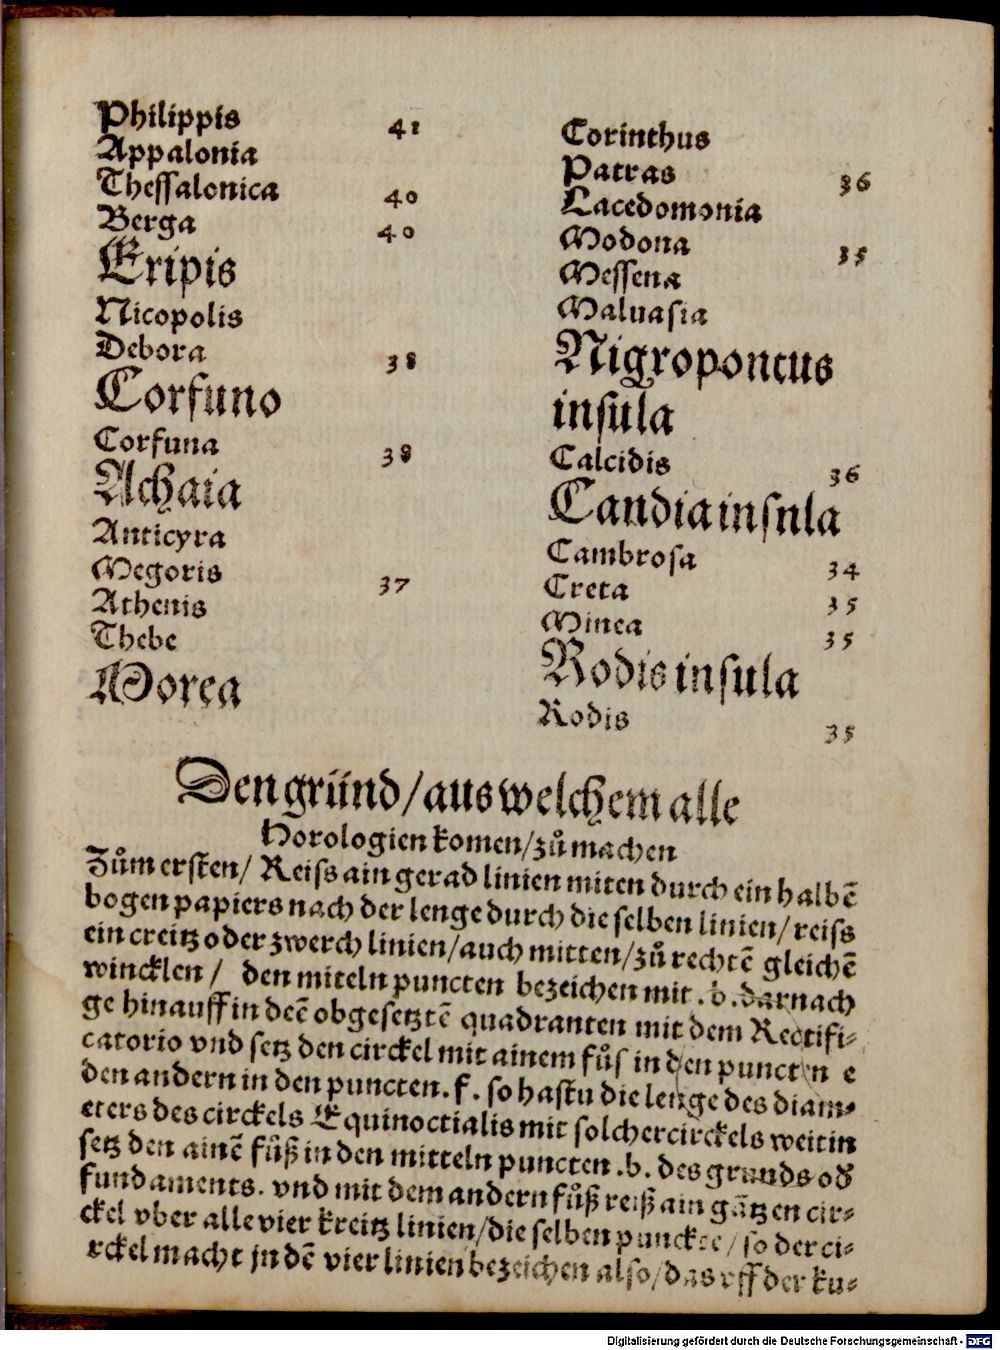 Philippis 41
Appalonia
Thessalonica 40
Berga 40
Eripis
Nicopolis
Debora 38
Corfuno
Corfuna 38
Achaia
Anticyra
Megoris 37
Athenis
Thebe
Morea
Corinthus
Patras 36
Lacedomonia
Modona 35
Messena
Maluasia
Nigropontus
insula
Calcidis 36
Candia insnla
Cambrosa 34
Creta 35
Minea 35
Rodis insula
Rodis 35
Den gründ / aus welchem alle
Horologien komen / zů machen
Zům ersten / Reiss ain gerad linien miten durch ein halbē
bogen papiers nach der lenge durch die selben linien / reiss
ein creitz oder zwerch linien / auch mitten / zů rechtē gleichē
wincklen / den miteln puncten bezeichen mit . b . darnach
ge hinauff in deē obgesetztē quadranten mit dem Rectifi-
catorio vnd setz den circkel mit ainem fůs in den puncten e
den andern in den puncten . f . so hastu die lenge des diam-
eters des circkels Equinoctialis mit solcher circkels weit in
setz den ainē fůß in den mitteln puncten . b . des grunds oď
fundaments . vnd mit dem andern fůß reiß ain gātzen cir-
ckel vber alle vier kreitz linien / die selben punckte / so der ci-
rckel macht jn dē vier linien bezeichen also / das vff der ku-
Digitalisierung gefördert durch die Deutsche Forschungsgemeinschaft - DFG